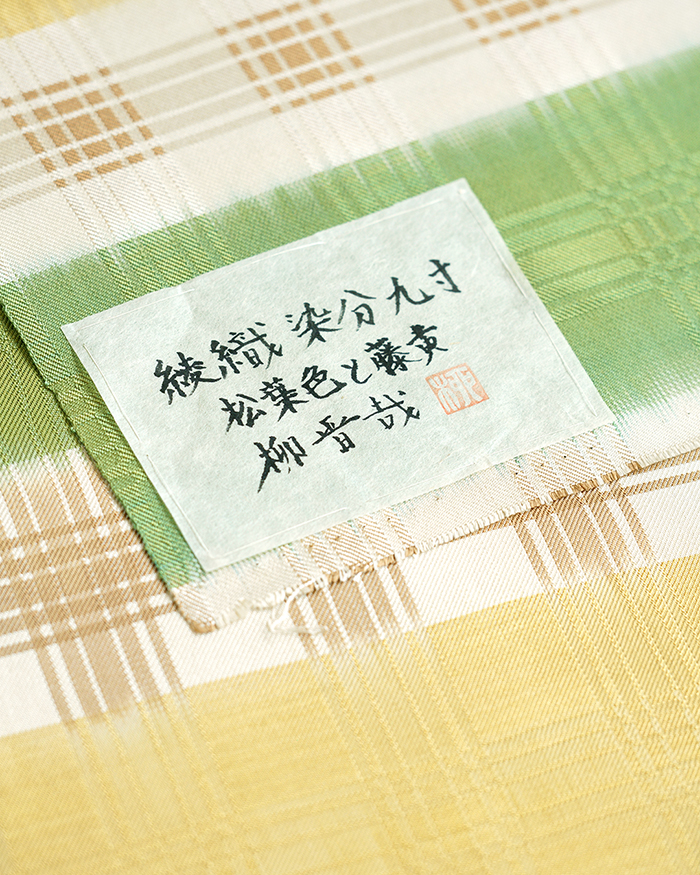 綾織 染分九寸
松葉色と藤黄
柳晋哉
柳